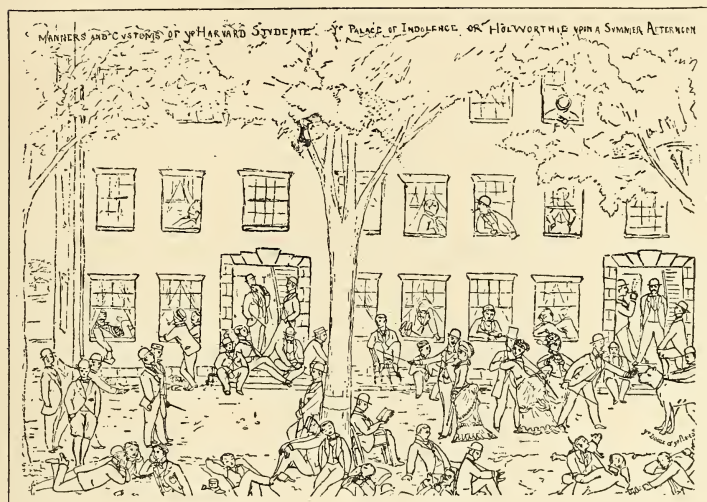 MANNERS AND CVSTOMS OF yᵉ HARVARD STVDENTE. yᵉ PALACE OF INDOLENCE OR HOLWORTHIE VPON A SVMMER AFTERNOON